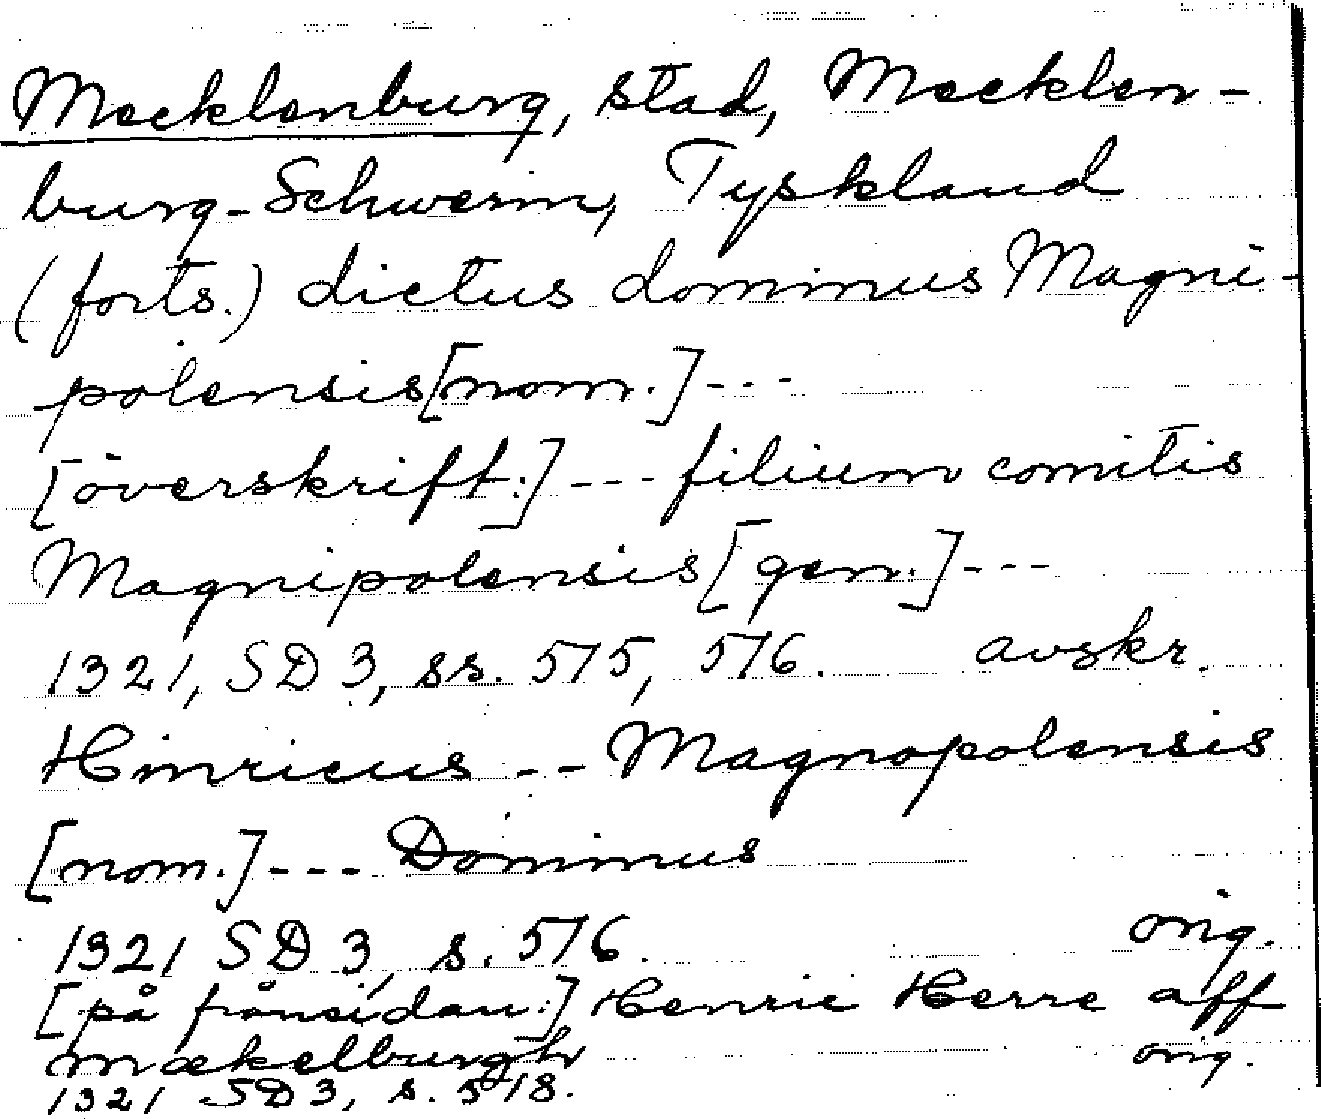 Mecklenburg, stad, Mecklen-
burg-Schwerin, Tyskland
(forts.) dictus dominus Magni-
polensis [nom.] ---
[överskrift:] --- filium comitis
Magnipolensis [gen.] ---
1321, SD 3, ss. 575, 576. avskr.
Hinricus -- Magnopolensis
[nom.] --- Dominus
1321 SD 3, s. 576. orig.
[på frånsidan:] Henric Herre aff
mækelburgh orig.
1321 SD 3, s. 578.